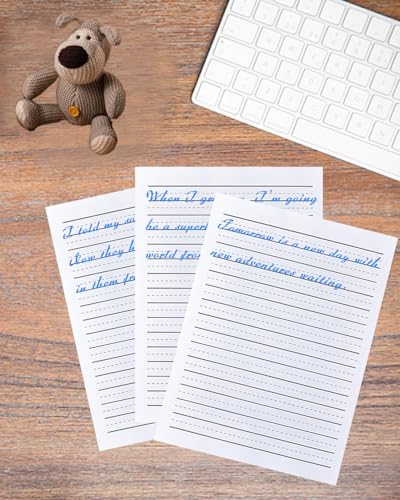 I told my
Now they
in them
When I I'm going
be a
world
Tomorrow is a new day with
new adventures waiting.